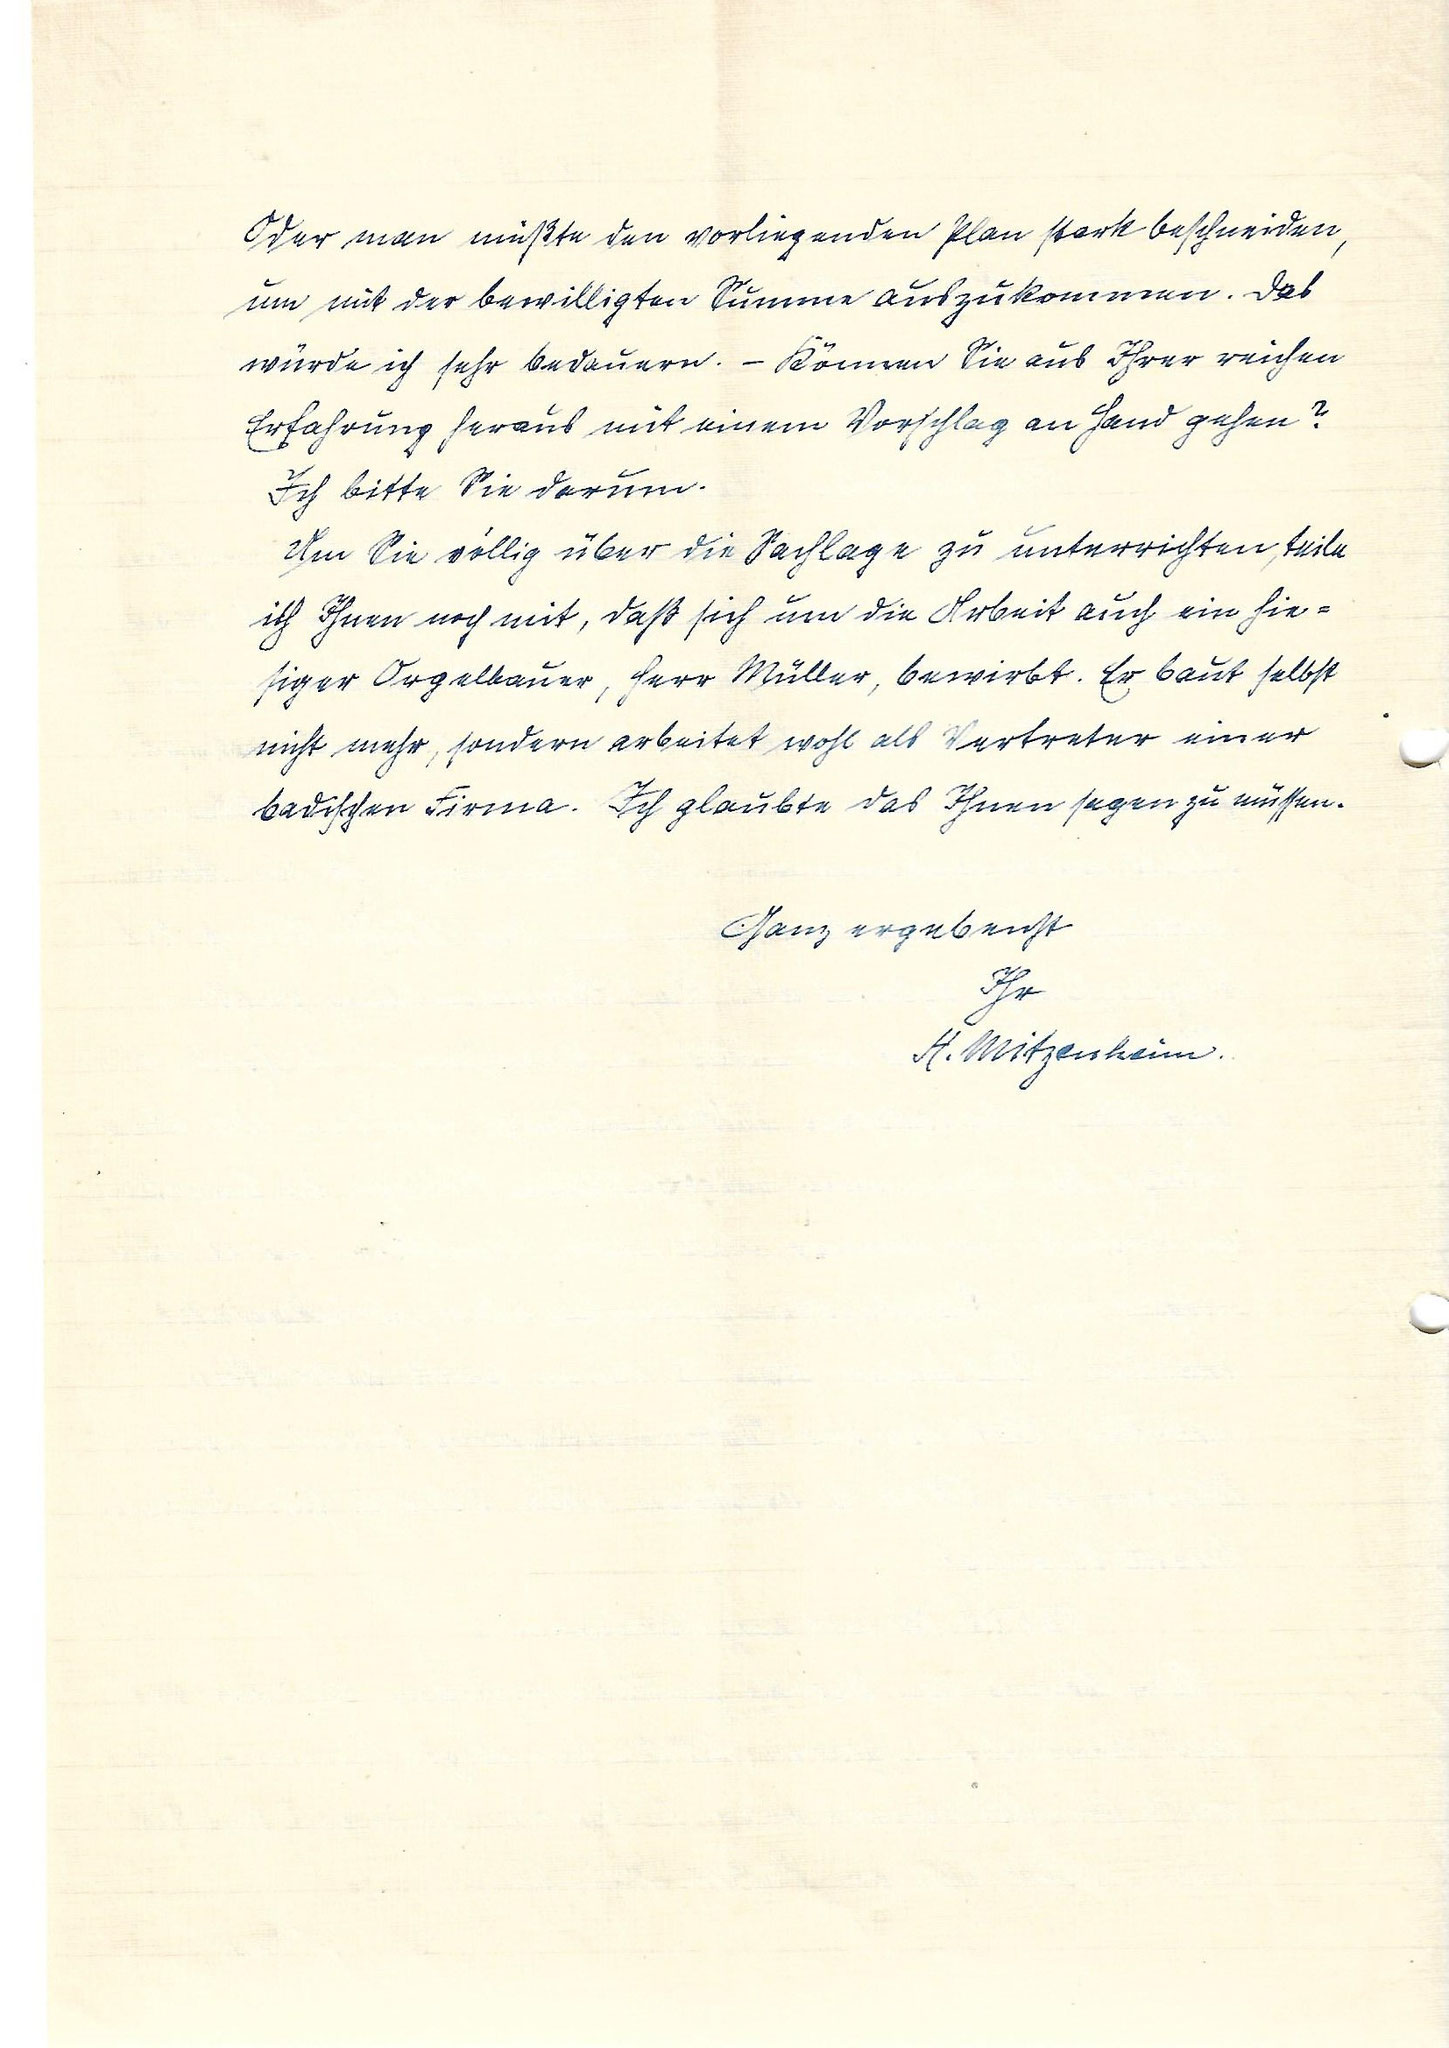 Oder man müßte den vorliegenden Plan stark beschneiden,
um mit der bewilligten Summe auszukommen. Das
würde ich sehr bedauern. – Können Sie aus Ihrer reichen
Erfahrung heraus mit einem Vorschlag an Hand gehen?
Ich bitte Sie darum.
Um Sie völlig über die Sachlage zu unterrichten, teile
ich Ihnen noch mit, daß sich um die Arbeit auch ein hie=
siger Orgelbauer, Herr Müller, bewirbt. Er baut selbst
nicht mehr, sondern arbeitet wohl als Vertreter einer
badischen Firma. Ich glaubte das Ihnen sagen zu müssen.
Ganz ergebenst
Ihr
H. Mitzenheim.